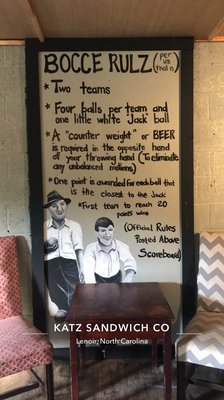 BOCCE RULZ (per us that is)
* Two teams
* Four balls per team and
one little white "Jack" ball
* A "counter weight" or BEER
is required in the opposite hand
of your throwing hand (To eliminate
any unbalanced motions)
* One point is awarded for each ball that
is the closest to the Jack
* First team to reach 20
points wins
(Official Rules
Posted Above
Scoreboard)
KATZ SANDWICH CO
Lenoir, North Carolina